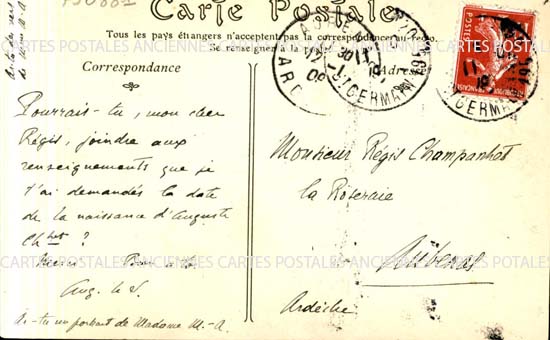 Carte Postale
Tous les pays étrangers n'acceptent pas la correspondance au recto.
Se renseigner à la
Correspondance
Adresse
Pourrais-tu, mon cher
Régis, joindre aux
renseignements que je
t'ai demandés la date
de la naissance d'Auguste
Ch^het ?
Merci
Aug. le S.
As-tu un portrait de Madame M.-A.
Monsieur Régis Champanhet
La Roseraie
Aubenas
Ardèche
ST GERMAIN
CARTES POSTALES ANCIENNES CARTES POSTALES ANCIENNES CARTES POSTALES ANCIENNES